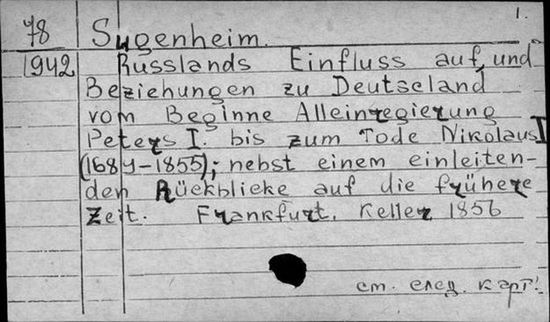 1.
78 Sugenheim.
1942 Russlands Einfluss auf, und
Beziehungen zu Deutseland
vom Beginne Alleinregierung
Peters I. bis zum Tode Nikolaus I
(1689-1855); nebst einem einleiten-
den Rückblicke auf die frühere
Zeit. Frankfurt. Keller 1856
см. след. карт!